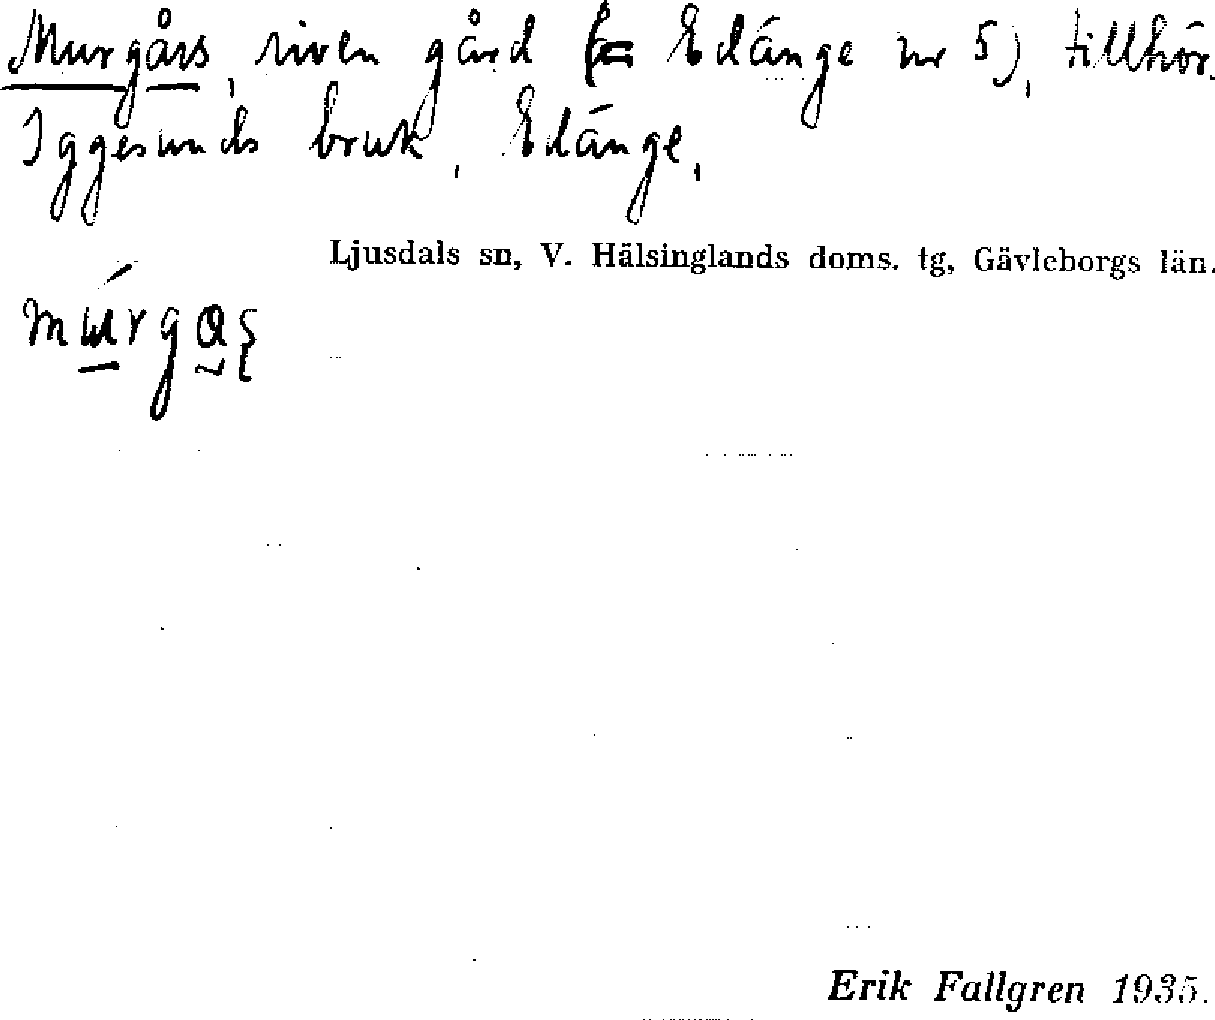 Murgårs, riven gård (= Edänge nr 5), tillhör.
Iggesunds bruk, Edänge.
Ljusdals sn, V. Hälsinglands doms. tg, Gävleborgs län.
Erik Fallgren 1935.